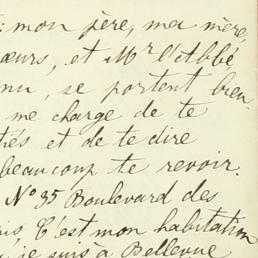 : mon père, ma mère,
sœurs, et Mr l'Abbé
nu, se portent bien.
me charge de te
tiés et de te dire
beaucoup te revoir.
N° 35 Boulevard des
is, C'est mon habitation
, je suis à Bellevue